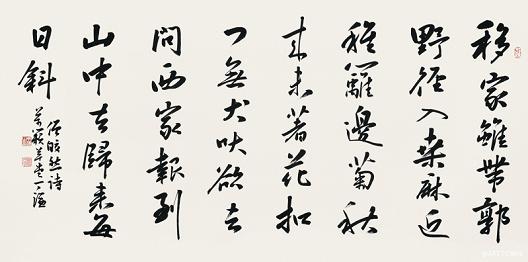 移家雖帶郭
野徑入桑麻近
種籬邊菊秋
來未著花扣
门無犬吠欲去
問西家報到
山中去歸來每
日斜
僧皎然詩
草堂丁